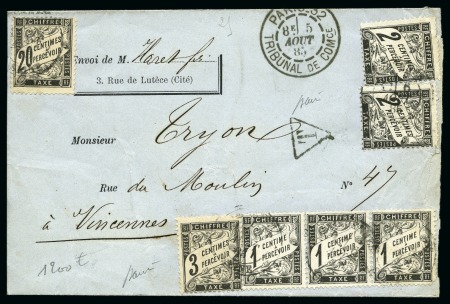 CHIFFRE
20 CENTIMES À PERCEVOIR
TAXE
Envoi de M. Haret fs.
3, Rue de Lutèce (Cité)
PARIS-32
8E 5
AOUT
85
TRIBUNAL DE COMCE
CHIFFRE
2 CENTIMES À PERCEVOIR
TAXE
CHIFFRE
2 CENTIMES À PERCEVOIR
TAXE
Monsieur Tryon
Rue du Moulin No 47
à Vincennes
CHIFFRE CHIFFRE CHIFFRE CHIFFRE
3 CENTIMES À PERCEVOIR 1 CENTIME À PERCEVOIR 1 CENTIME À PERCEVOIR 1 CENTIME À PERCEVOIR
TAXE TAXE TAXE TAXE